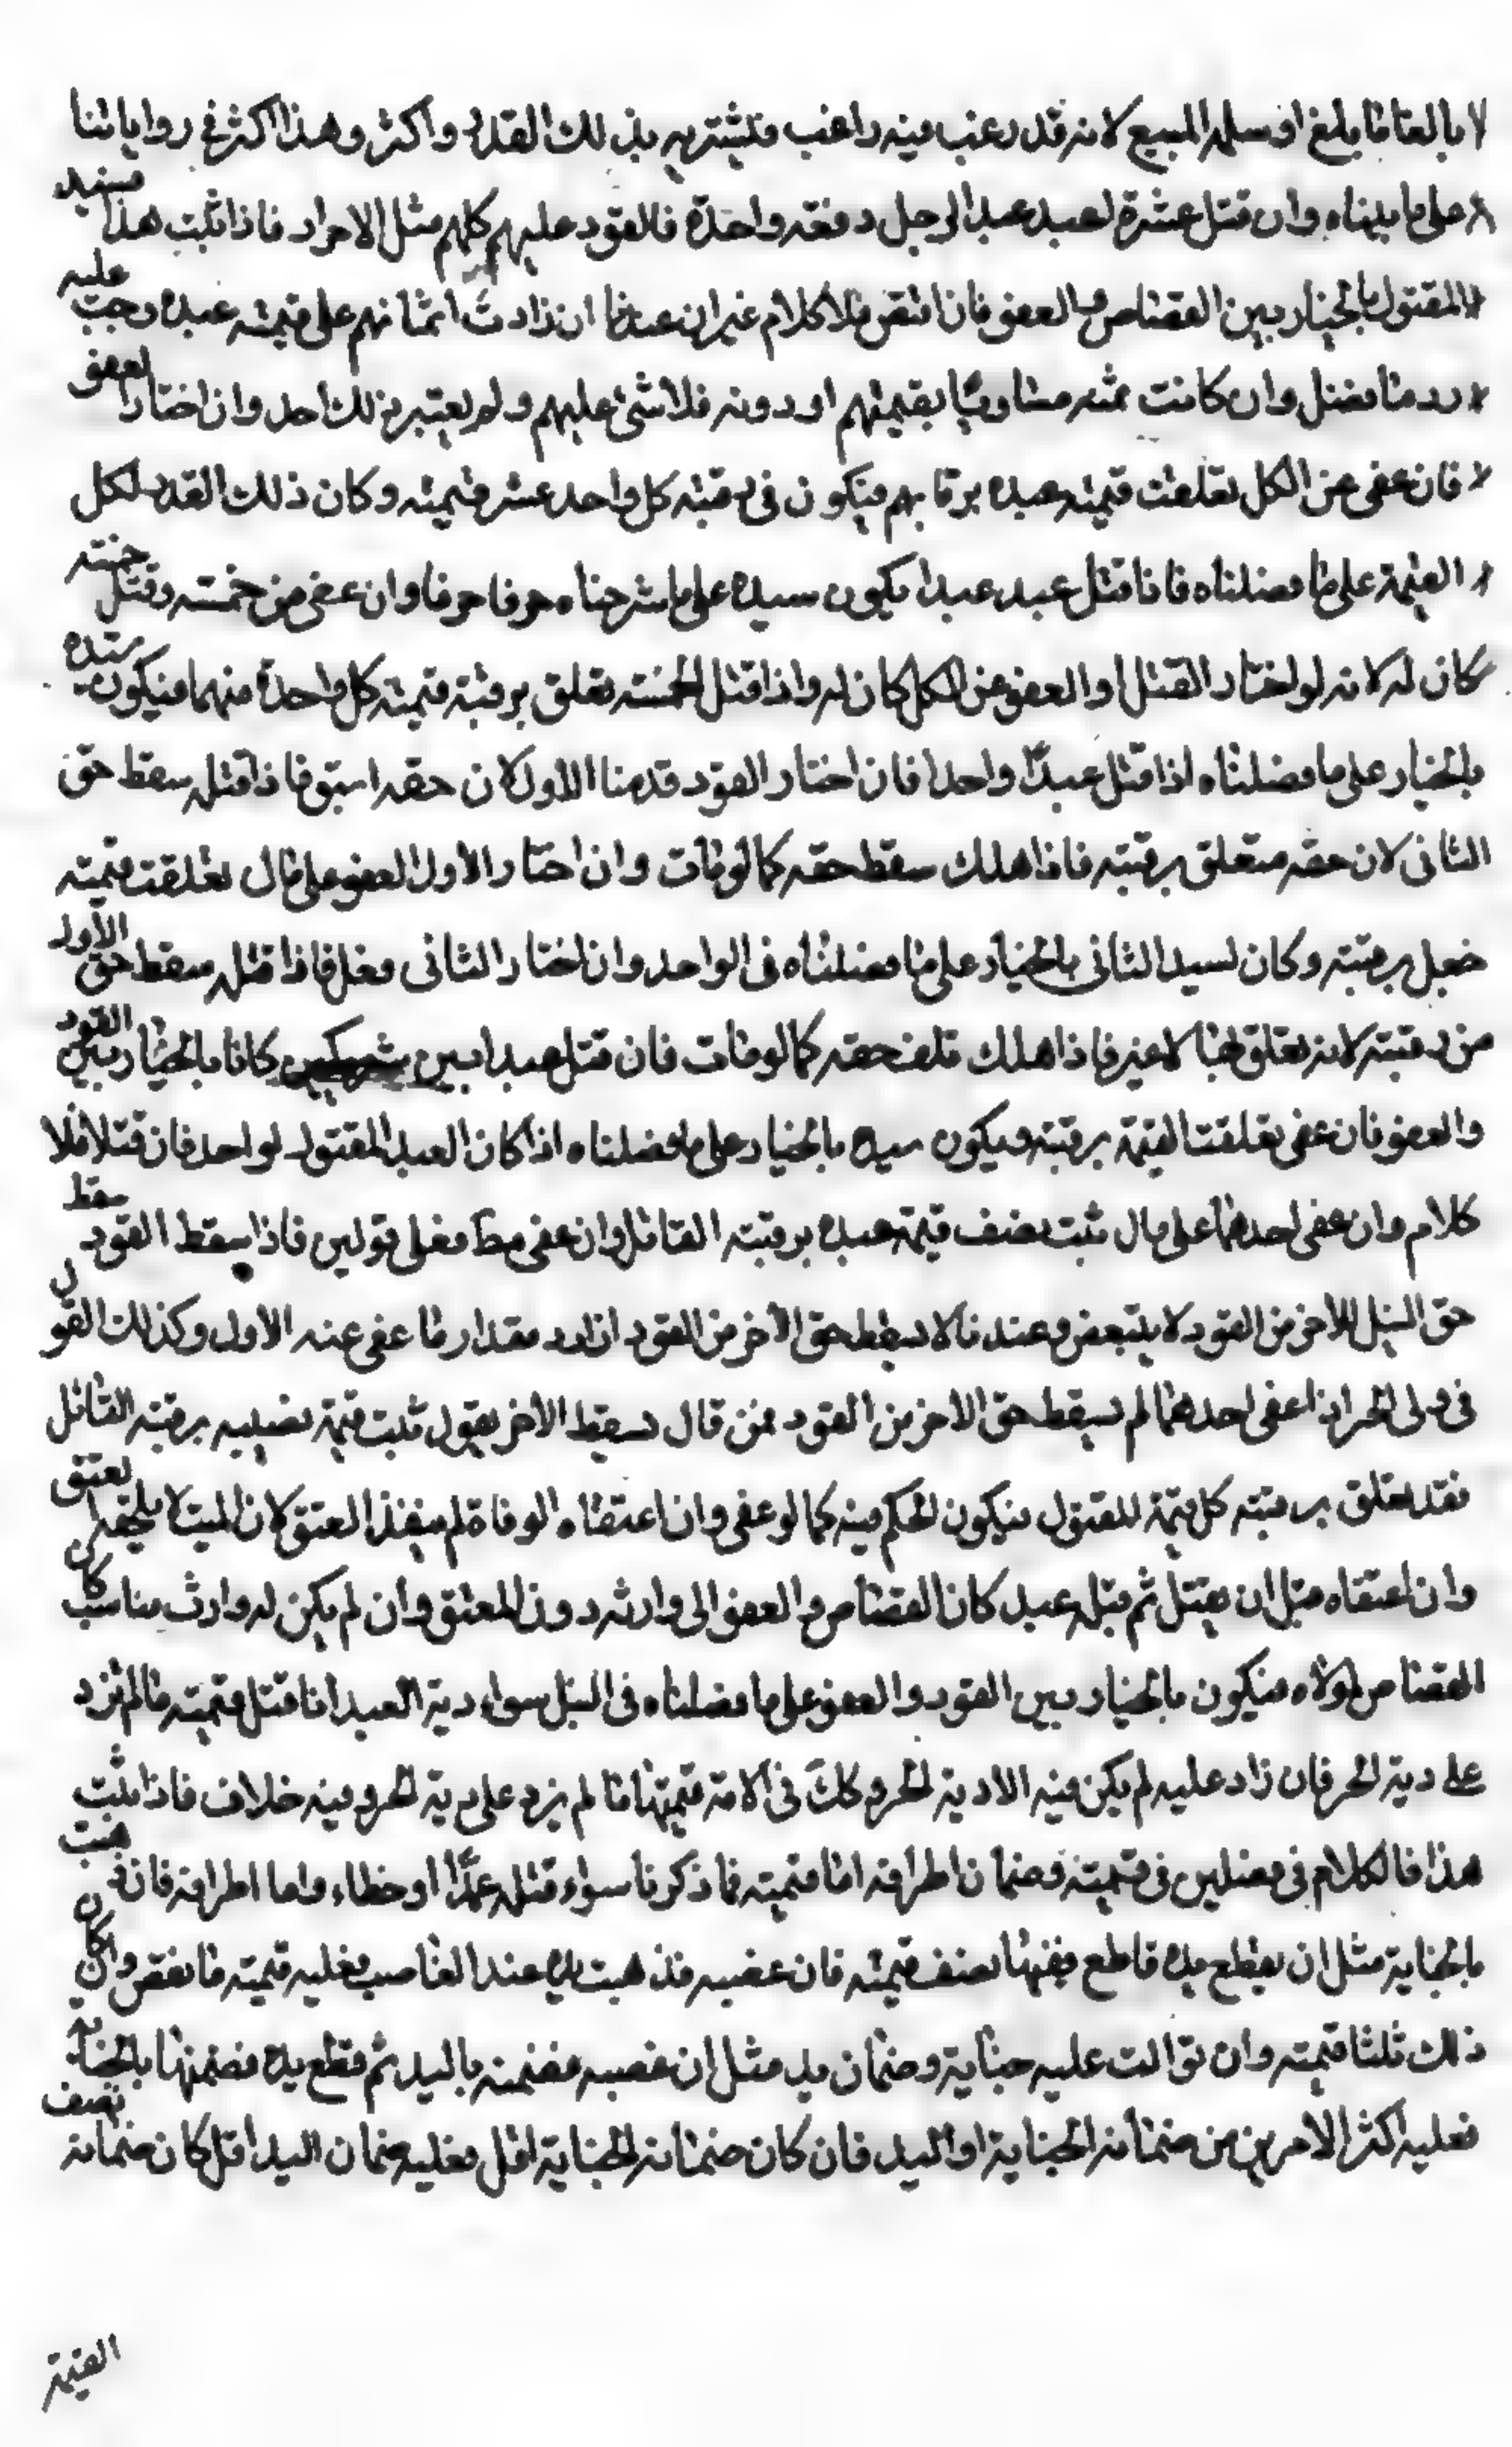 بالغا ما بلغ او سلمه للبيع لانه قد رغب فيه راغب فيشتريه بذلك القدر واكثر وهذا اكثر في رواياتنا
على ما بيناه وان قتل عشرة اعبد عبدا لرجل دفعة واحدة فالقود عليهم كلهم مثل الاحرار فاذا ثبت هذا فسيد
المقتول بالخيار بين القصاص والعفو فان اقتص فلا كلام غير ان عندنا ان زادت اثمانهم على قيمته عبده وجب عليه
رد ما فضل وان كانت ثمنه مساويا بقيمتهم او دونه فلا شئ عليهم ولم يعتبر ذلك احد وان اختار العفو
فان عفى عن الكل تعلقت قيمته عبده برقابهم فيكون في رقبته كل واحد عشر قيمته وكان ذلك القدر لكل
القيمة على ما فصلناه فاذا قتل عبد عبدا يكون سيده على ما شرحناه حرفا حرفا وان عفى من خمسة وقتل خمسة
كان له لانه لو اختار القتل او العفو عن الكل كان له واذا قتل الخمسة تعلق برقبته قيمته كل واحدة منهما فيكون سيده
بالخيار على ما فصلناه اذا قتل عبدا واحدا فان اختار القود قدمنا الاول لان حقه اسبق فاذا قتله سقط حق
الثاني لان حقه متعلق برقبته فاذا هلك سقط حقه كما لو مات وان اختار الاول العفو على مال تعلقت قيمته
برقبته وكان لسيد الثاني بالخيار على ما فصلناه في الواحد وان اختار الثاني فاذا قتله سقط حق الاول
من رقبته لانه تعلق بها لا غير فاذا هلك تلف حقه كما لو مات فان قتل عبدا بين شريكين كانا بالخيار بين القود
والعفو فان عفى تعلقت القيمة برقبته ويكون سيده بالخيار على ما فصلناه اذا كان العبد المقتول لواحد فان قتلا فلا
كلام وان عفى احدهما على مال ثبت نصف قيمة عبده برقبته القاتل وان عفى مط فعلى قولين فاذا سقط القود سقط
حق الاخر من القود لا يتبعض وعندنا لا يسقط حق الاخر من القود ان رد مقدار ما عفى عنه الاول وكذلك القول
في ولى الحر اذا عفى احدهما لم يسقط حق الاخر من القود فمن قال يسقط الاخر يقول ثبت قيمة نصيبه برقبته القاتل
فقد تعلق برقبته كل قيمة للمقتول فيكون الحكم فيه كما لو عفى وان اعتقاه الوفاة لم ينفذ العتق لان الميت لا يلحقه العتق
وان اعتقاه قبل ان يقتل ثم قتله عبد كان القصاص والعفو الى وارثه دون المعتق وان لم يكن له وارث مناسب كان
القصاص لمولاه فيكون بالخيار بين القود والعفو على ما فصلناه سواء دية العبد اذا قتل قيمته ما لم تزد
على دية الحر فان زاد عليه لم يكن فيه الا دية الحر وكك في الامة قيمتها ما لم يزد على دية الحر وفيه خلاف فاذا ثبت
هذا فالكلام في فصلين في قيمته وضمان اطرافه اما قيمته فما ذكرنا سواء قتله عمدا او خطاء واما اطرافه فان ذهبت
بالجناية مثل ان يقطع يده قاطع ففيها نصف قيمته فان غصبه فذهبت يده عند الغاصب فعليه قيمته ما نقص وان كان
ذلك ثلثا قيمته وان توالت عليه جناية وضمان يد مثل ان غصبه فضمنه باليد ثم قطع يده فضمنها بالجناية
فعليه اكثر الامرين من ضمانه الجناية او اليد فان كان ضمانه الجناية اقل فعليه ضمان اليد اقل كان ضمانه نصف
القيمة